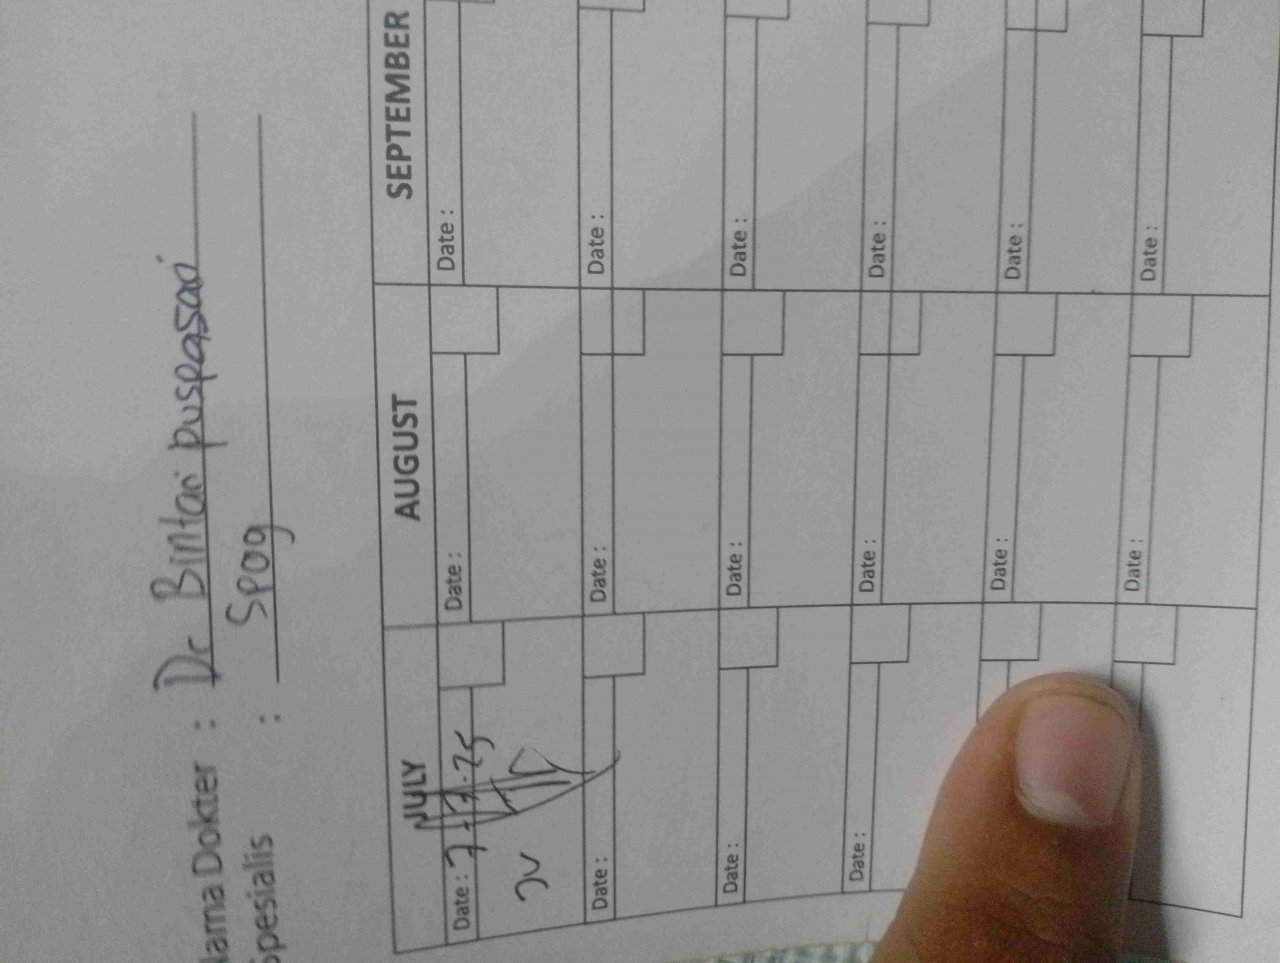 Nama Dokter : Dr Bintari puspasari
Spesialis : Spog
JULY AUGUST SEPTEMBER
Date : 7-7-25 Date : Date :
Date : Date : Date :
Date : Date : Date :
Date : Date : Date :
Date : Date :
Date : Date :